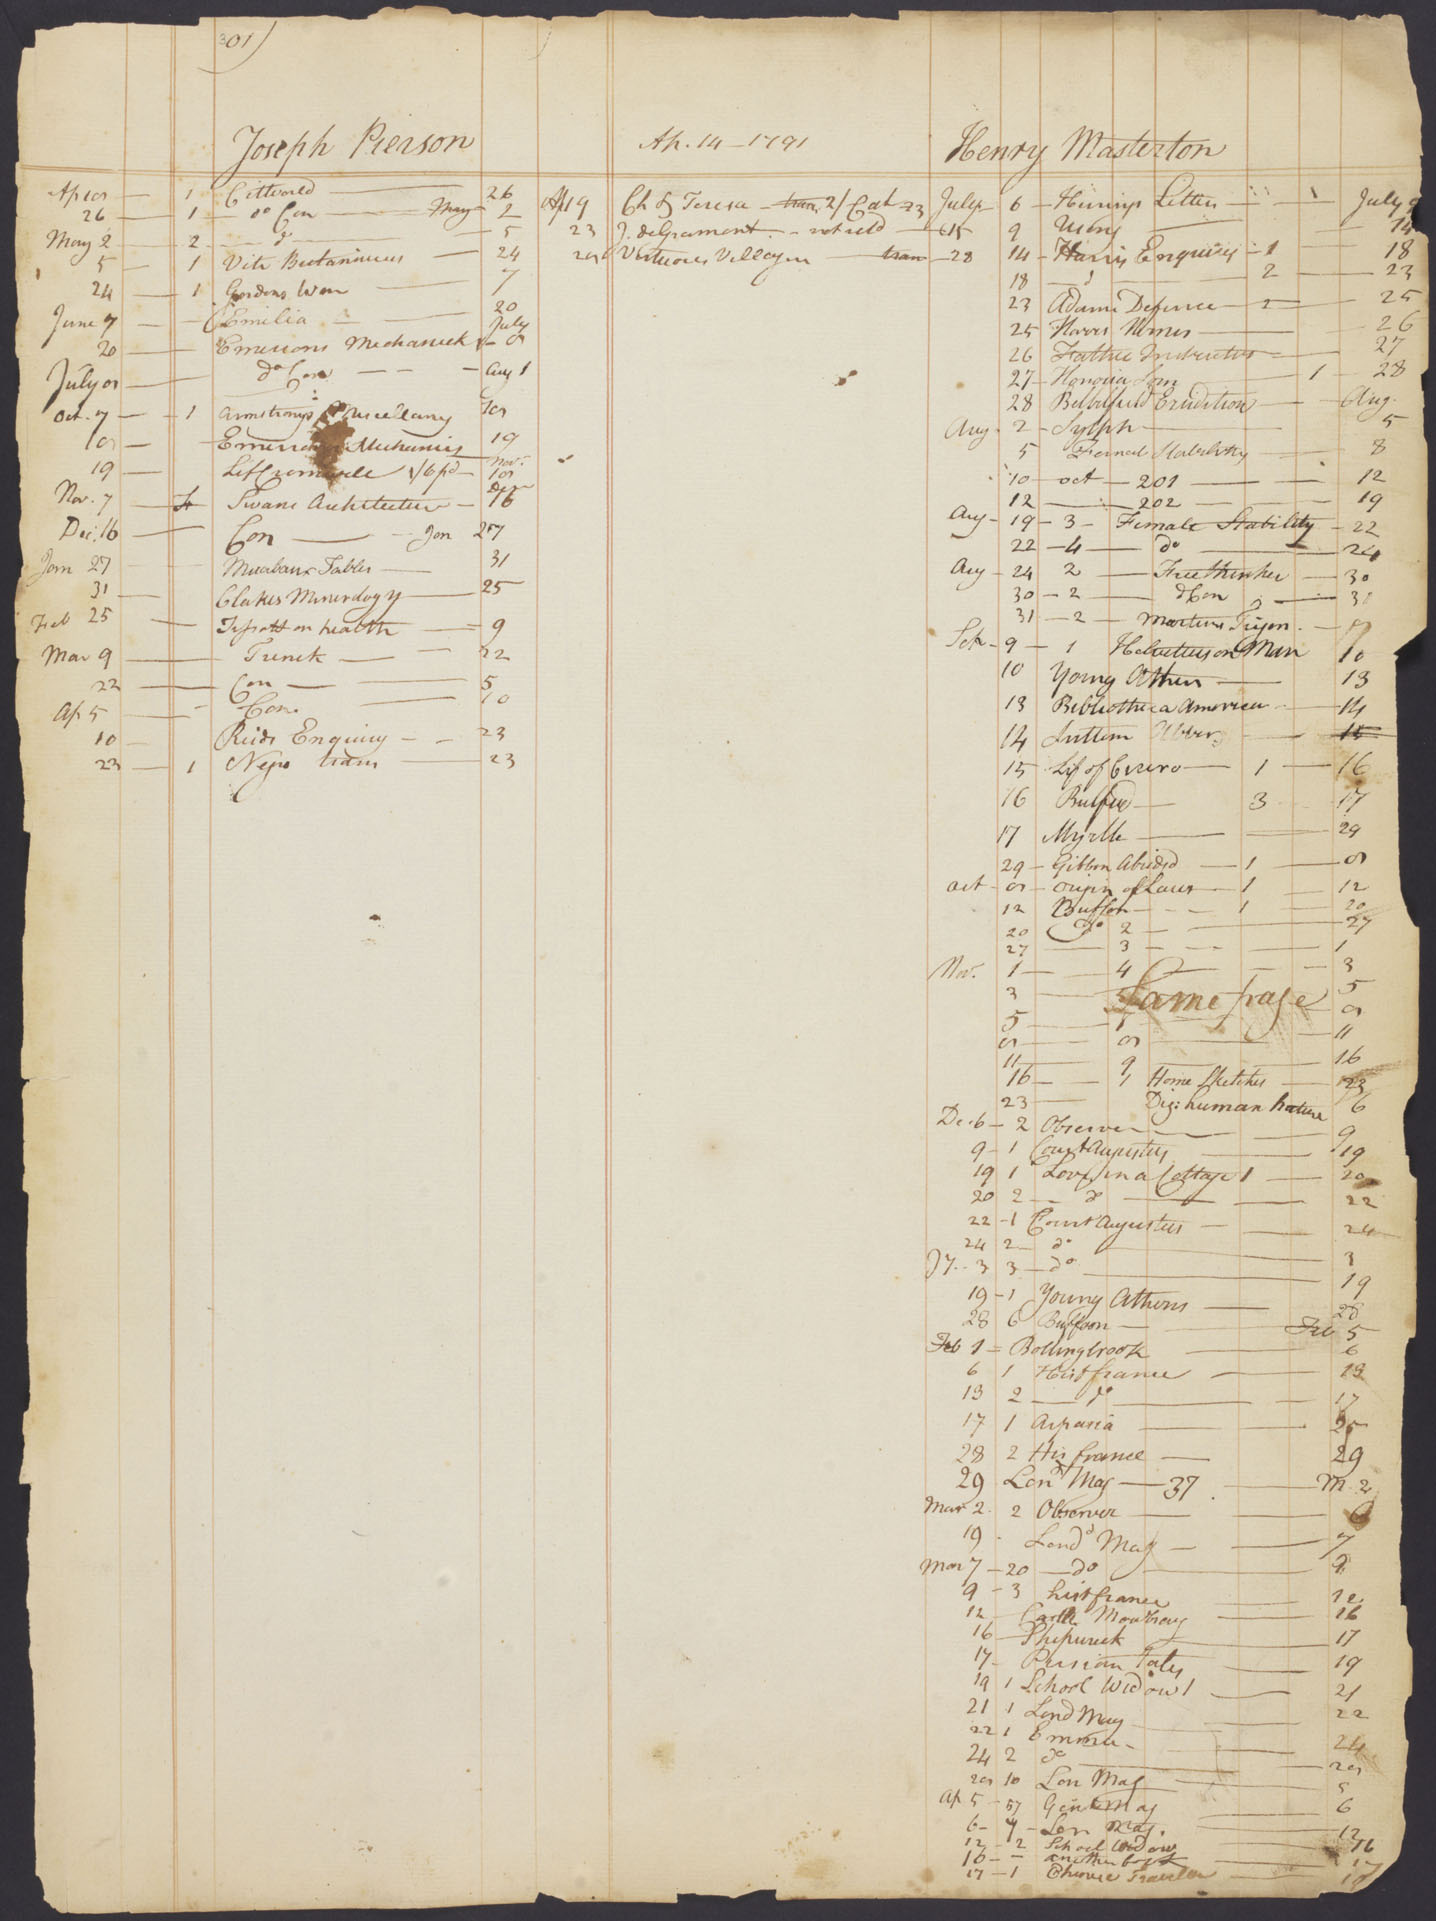 301)
Joseph Pierson
Ap 18 — 1 Cittworld — 26
26 — 1 — do Con — May — 2
May 2 — 2 — do — 5
5 — 1 Vita Brittanicus — 24
24 — 1 Gordons War — 7
June 7 — Emilia — 20
20 — Emersons Mechanick — July 8
July 8 — do Con — Aug 1
Oct. 7 — 1 Armstrongs Miscellany 18
18 — Emersons Mechanics 19
19 — Lif Cromwele Nov. 18
Nov. 7 — Swans Architecture — Dec 16
Dec. 16 — Con — Jan 27
Jan 27 — Tables — 31
31 — Clakes Minerdogy — 25
Feb 25 — on health — 9
Mar 9 — Trenck — 22
22 — Con — 5
Ap 5 — Con. — 10
10 — Reids Enquiry — 23
23 — 1 Negro trans — 23
Ap. 14 — 1791
Ap 19 Ch of Teresa — tran. 2/ Cat 23
23 J. deGramont — not retd — 15
28 Virtuous Villager — tran — 28
Henry Masterton
July — 6 — Letters — July 9
9 — 14
14 — Harris Enquiry — 1 — 18
18 — d — 2 — 23
23 Adams Defence — 2 — 25
25 Harris Hermes — 26
26 Father Instructor — 27
27 — Honoria Som — 1 — 28
28 Erudition — Aug.
Aug — 2 — Sylph — 5
5 Female Stability — 8
10 — oct — 201 — 12
12 — 202 — 19
Aug — 19 — 3 — Female Stability — 22
22 — 4 — do — 24
Aug — 24 2 — Freethinker — 30
30 — 2 — d Con — 31
31 — 2 — Martins — 9
Sep — 9 — 1 Helvetius on Man 10
10 Young Athens — 13
13 Bibliotheca America — 14
14 — 15
15 Lif of Cicero — 1 — 16
16 — 3 — 17
17 Myrtle — 29
29 — Gibbon Abridgd — 1 — 8
Oct — 8 — Origin of Laws — 1 — 12
12 Buffon — 1 — 20
20 do 2 — 27
27 — 3 — 1
Nov. 1 — 4 — 3
3 — Same page 5
5 — 8
8 — 8 — 11
11 — 9 — 16
16 — 1 Home Sketches — 23
23 — Dig: human Nature 6
Dec 6 — 2 Observer — 9
9 — 1 Court Augustus — 19
19 1 Love in a Cottage 1 — 20
20 2 — do — 22
22 — 1 Court Augustus — 24
24 2 — do — 3
Jy. — 3 3 — do — 19
19 — 1 Young Athens — 28
28 6 Buffoon — Feb 5
Feb 1 — Bollingbrook — 6
6 1 Hist france — 13
13 2 — do — 17
17 1 Aspasia — 25
28 2 His france — 29
29 Lond Mag — 37 — M. 2
Mar 2. 2 Observer — 6
19 Lond Mag — 7
Mar 7 — 20 — do — 9
9 — 3 hist france — 12
12 — Castle Mowbray — 16
16 — Shipwreck — 17
17 — Persian Tales — 19
19 1 School Widow 1 — 21
21 1 Lond Mag — 22
22 1 Emma — 24
24 2 do — 28
28 10 Lon Mag — 5
Ap 5 — 57 Gent Mag — 6
6 — 4 — Lon Mag. — 12
12 — 2 School Widow — 16
16 — — another book — 17
17 — 1 Chinese Traveler — 18